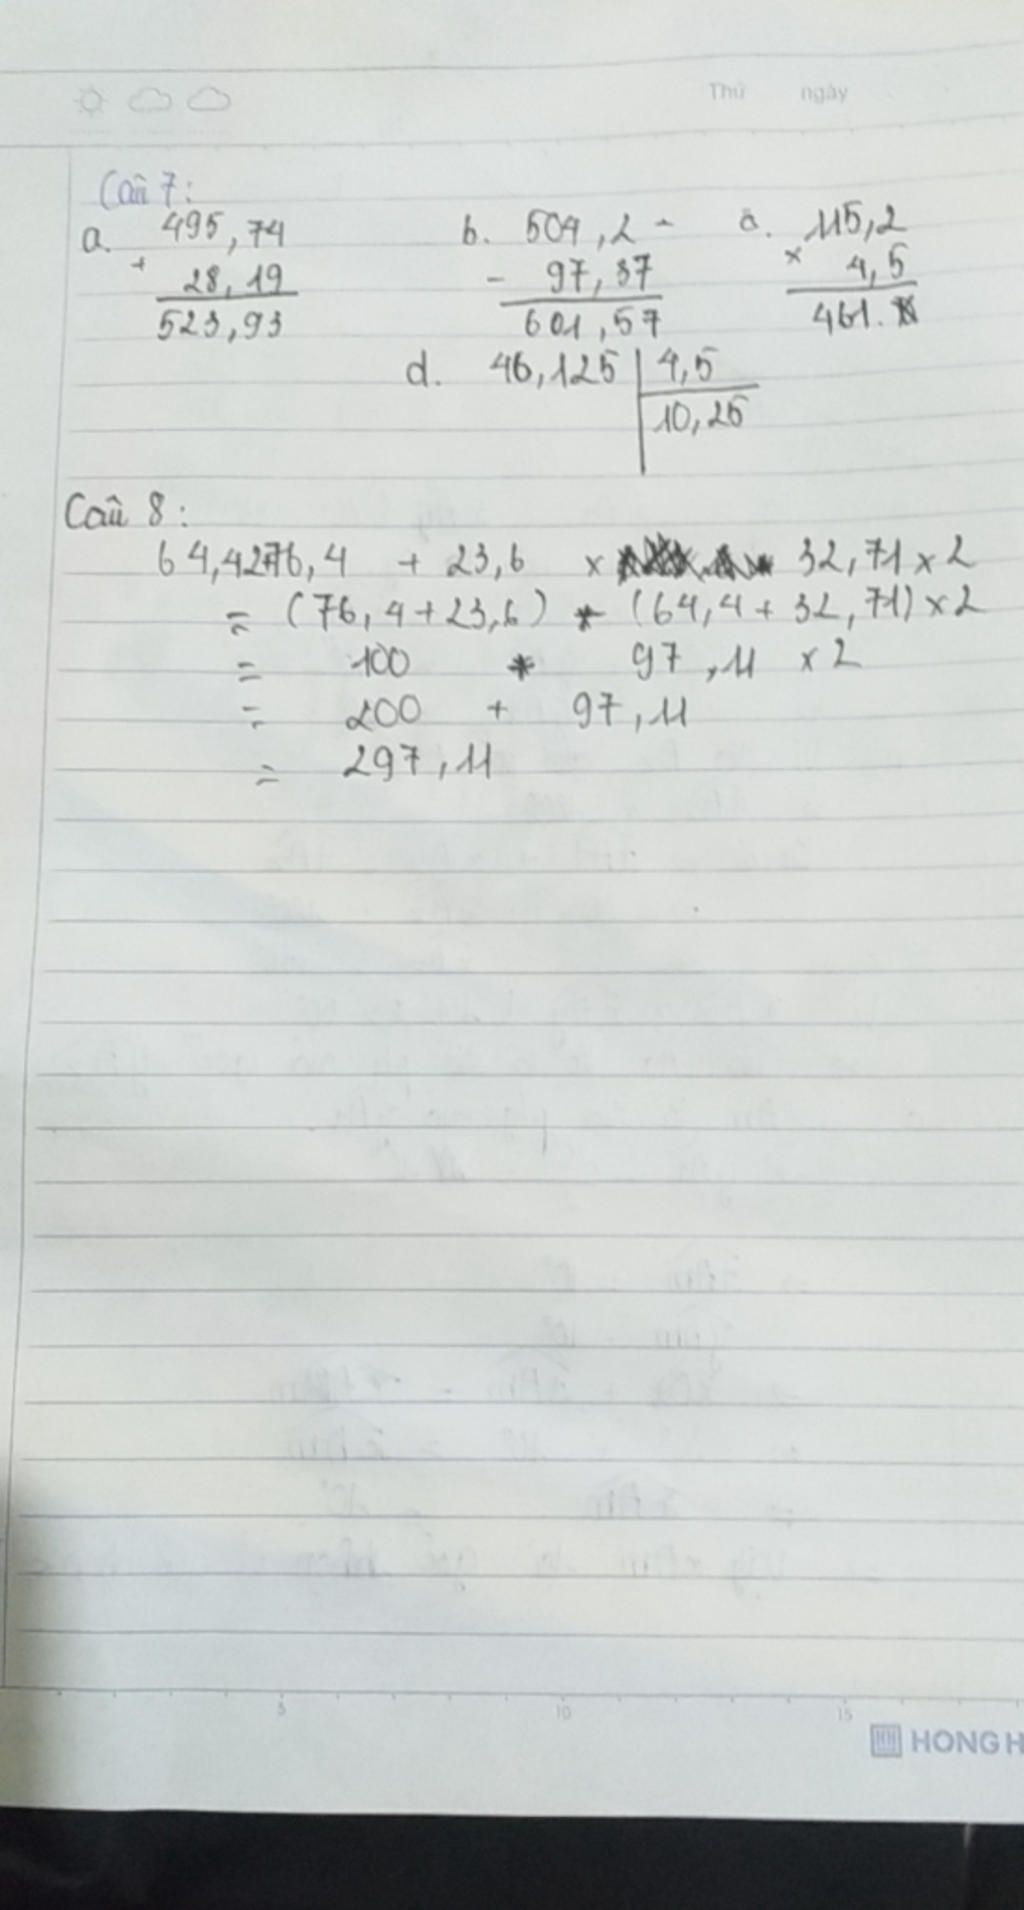 Thứ ngày
Câu 7:
a. 495,74 b. 504,2 - c. 115,2
+ 28,19 - 97,37 x 4,5
523,93 601,57 461.
d. 46,125 4,5
10,25
Câu 8:
64,4276,4 + 23,6 x 32,71 x 2
= (76,4 + 23,6) * (64,4 + 32,71) x 2
= 100 * 97,11 x 2
= 200 + 97,11
= 297,11
5 10 15
HONG H